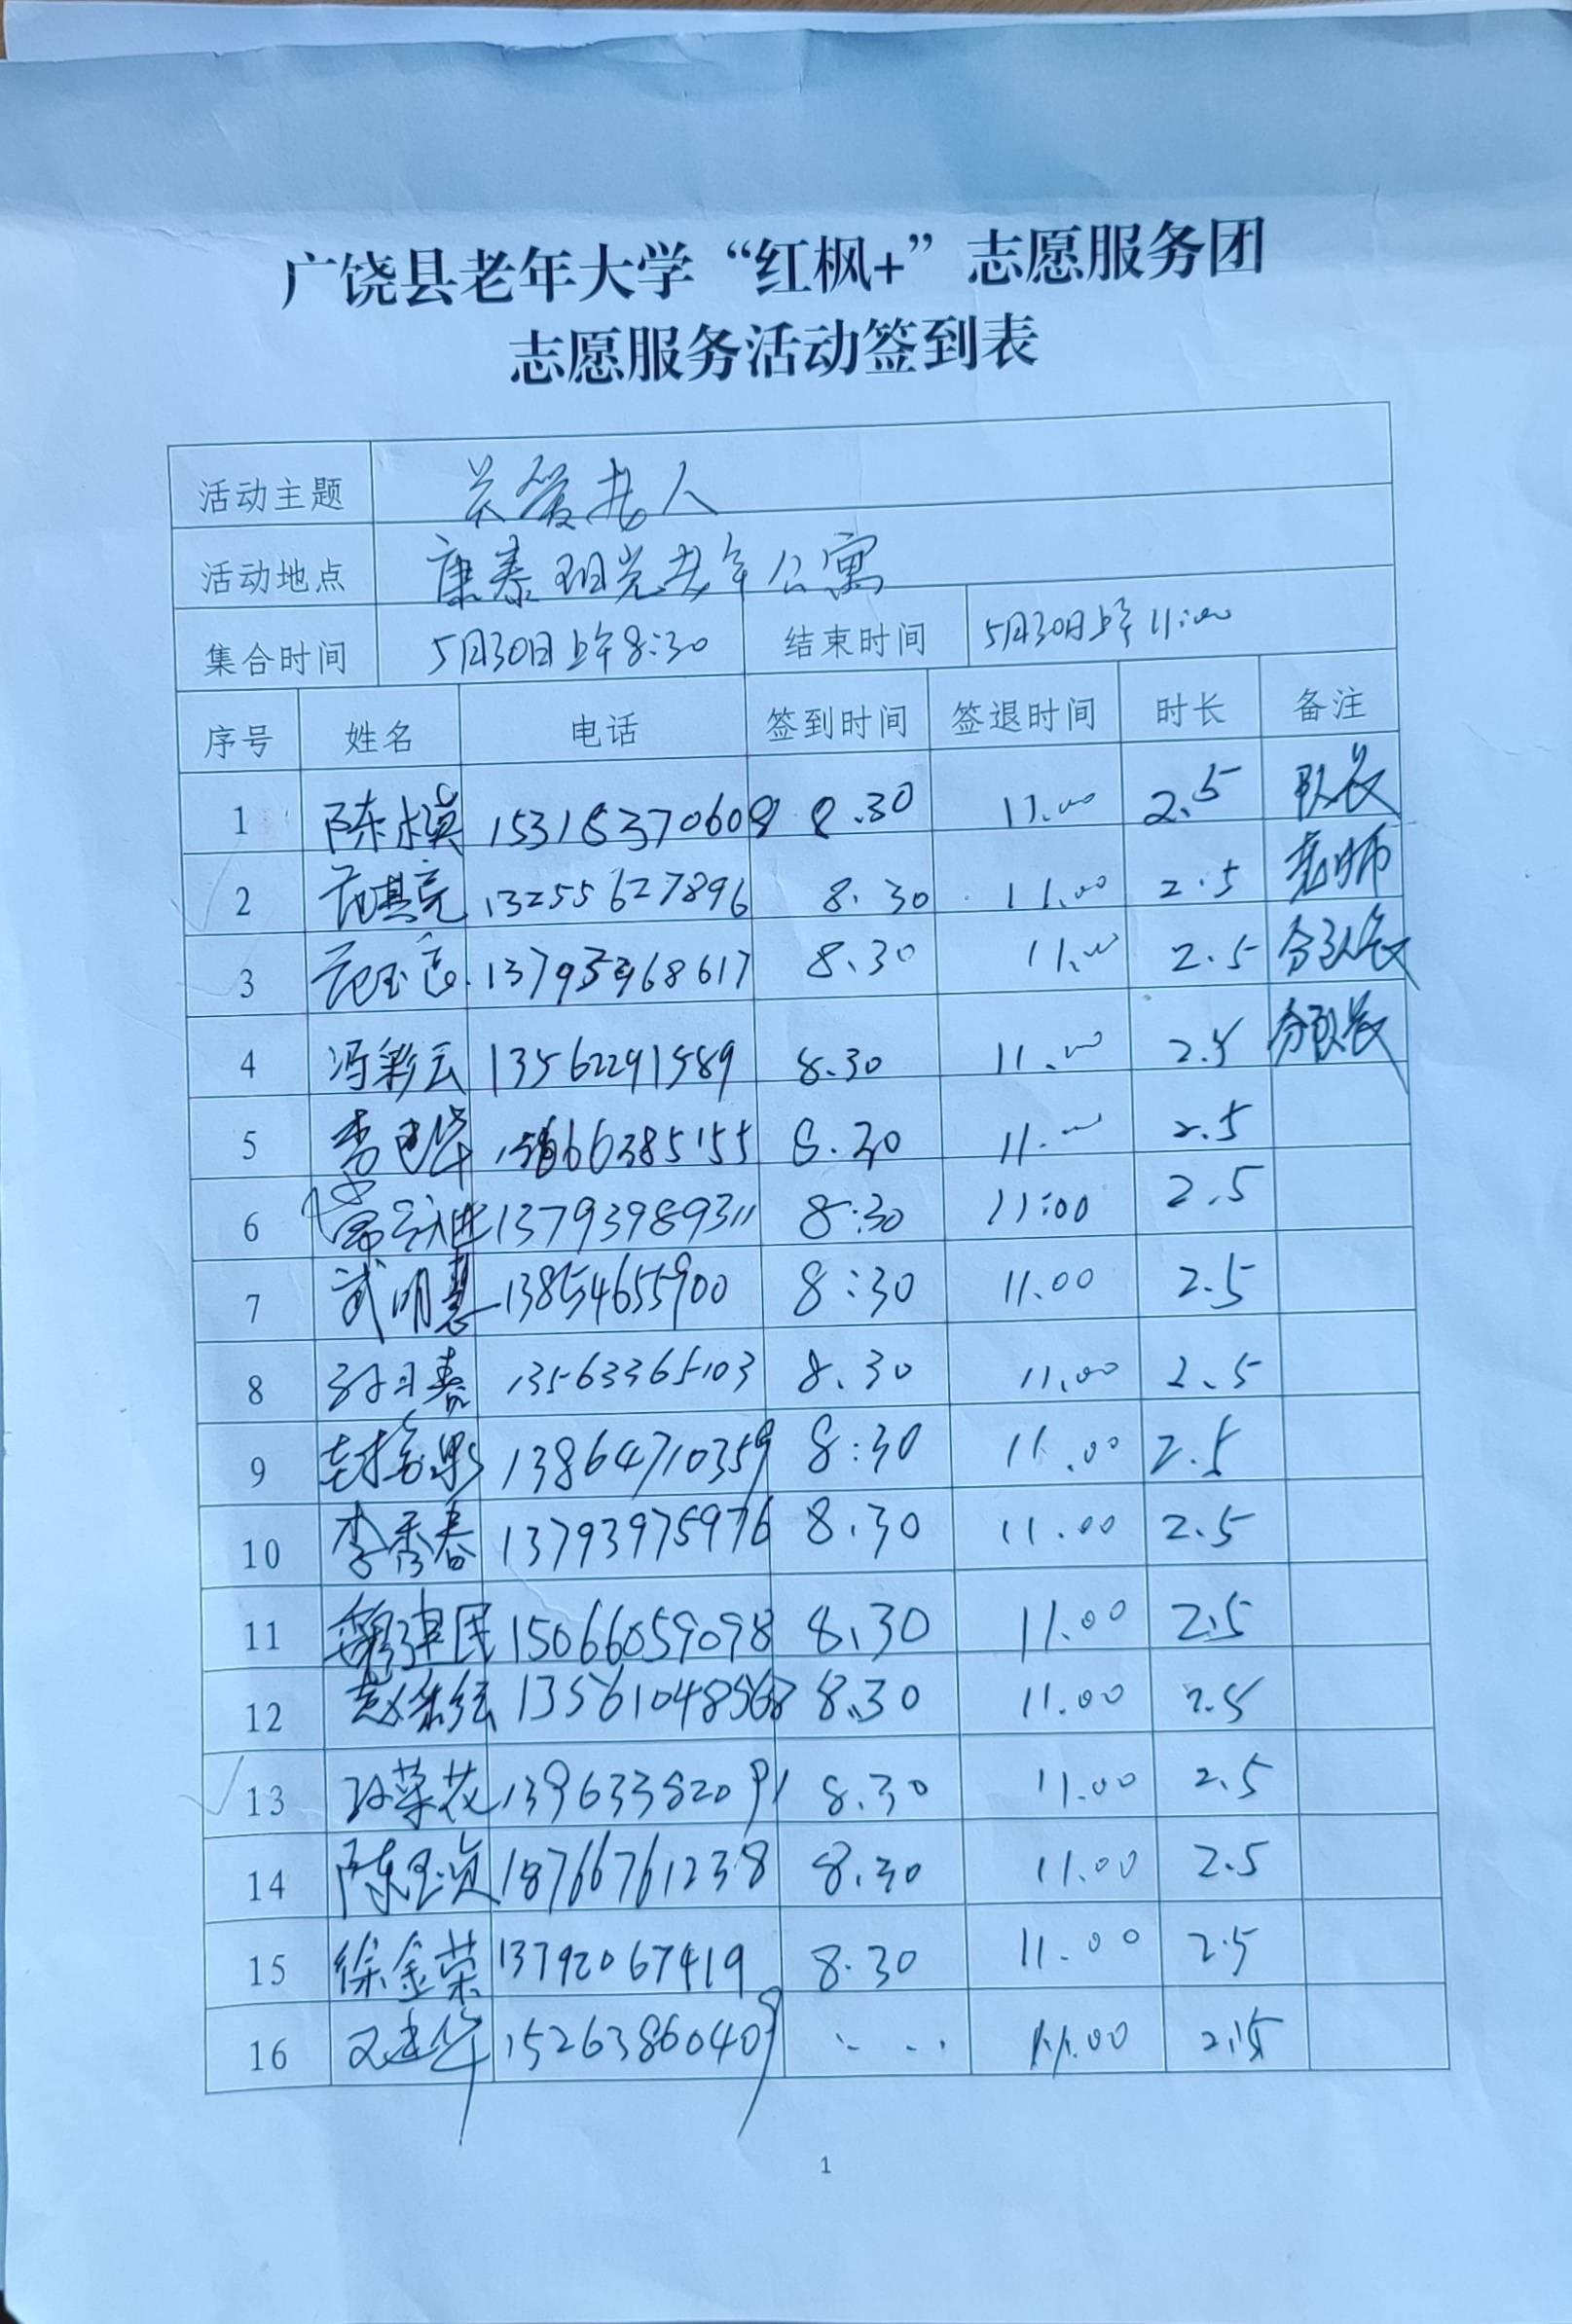 广饶县老年大学“红枫+”志愿服务团
志愿服务活动签到表
活动主题 关爱老人
活动地点 康泰阳光老年公寓
集合时间 5月30日上午8:30 结束时间 5月30日上午11:00
序号 姓名 电话 签到时间 签退时间 时长 备注
1 陈 15315370608 8.30 11.00 2.5 队长
2 范其亮 13255627896 8.30 11.00 2.5 老师
3 范玉 13793968617 8.30 11.00 2.5 分队长
4 冯彩云 13562291589 8.30 11.00 2.5 分队长
5 李建华 66385155 8.30 11.00 2.5
6 常 13793989311 8:30 11:00 2.5
7 武明慧 13854655900 8:30 11.00 2.5
8 孙习春 13563365103 8.30 11.00 2.5
9 13864710359 8:30 11.00 2.5
10 李秀春 13793975976 8.30 11.00 2.5
11 魏建民 15066059098 8.30 11.00 2.5
12 赵 13561048568 8.30 11.00 2.5
13 孙菜花 13963382091 8.30 11.00 2.5
14 陈玉贞 18766761238 8.30 11.00 2.5
15 徐金荣 13792067419 8.30 11.00 2.5
16 建华 15263860409 11.00 2.5
1